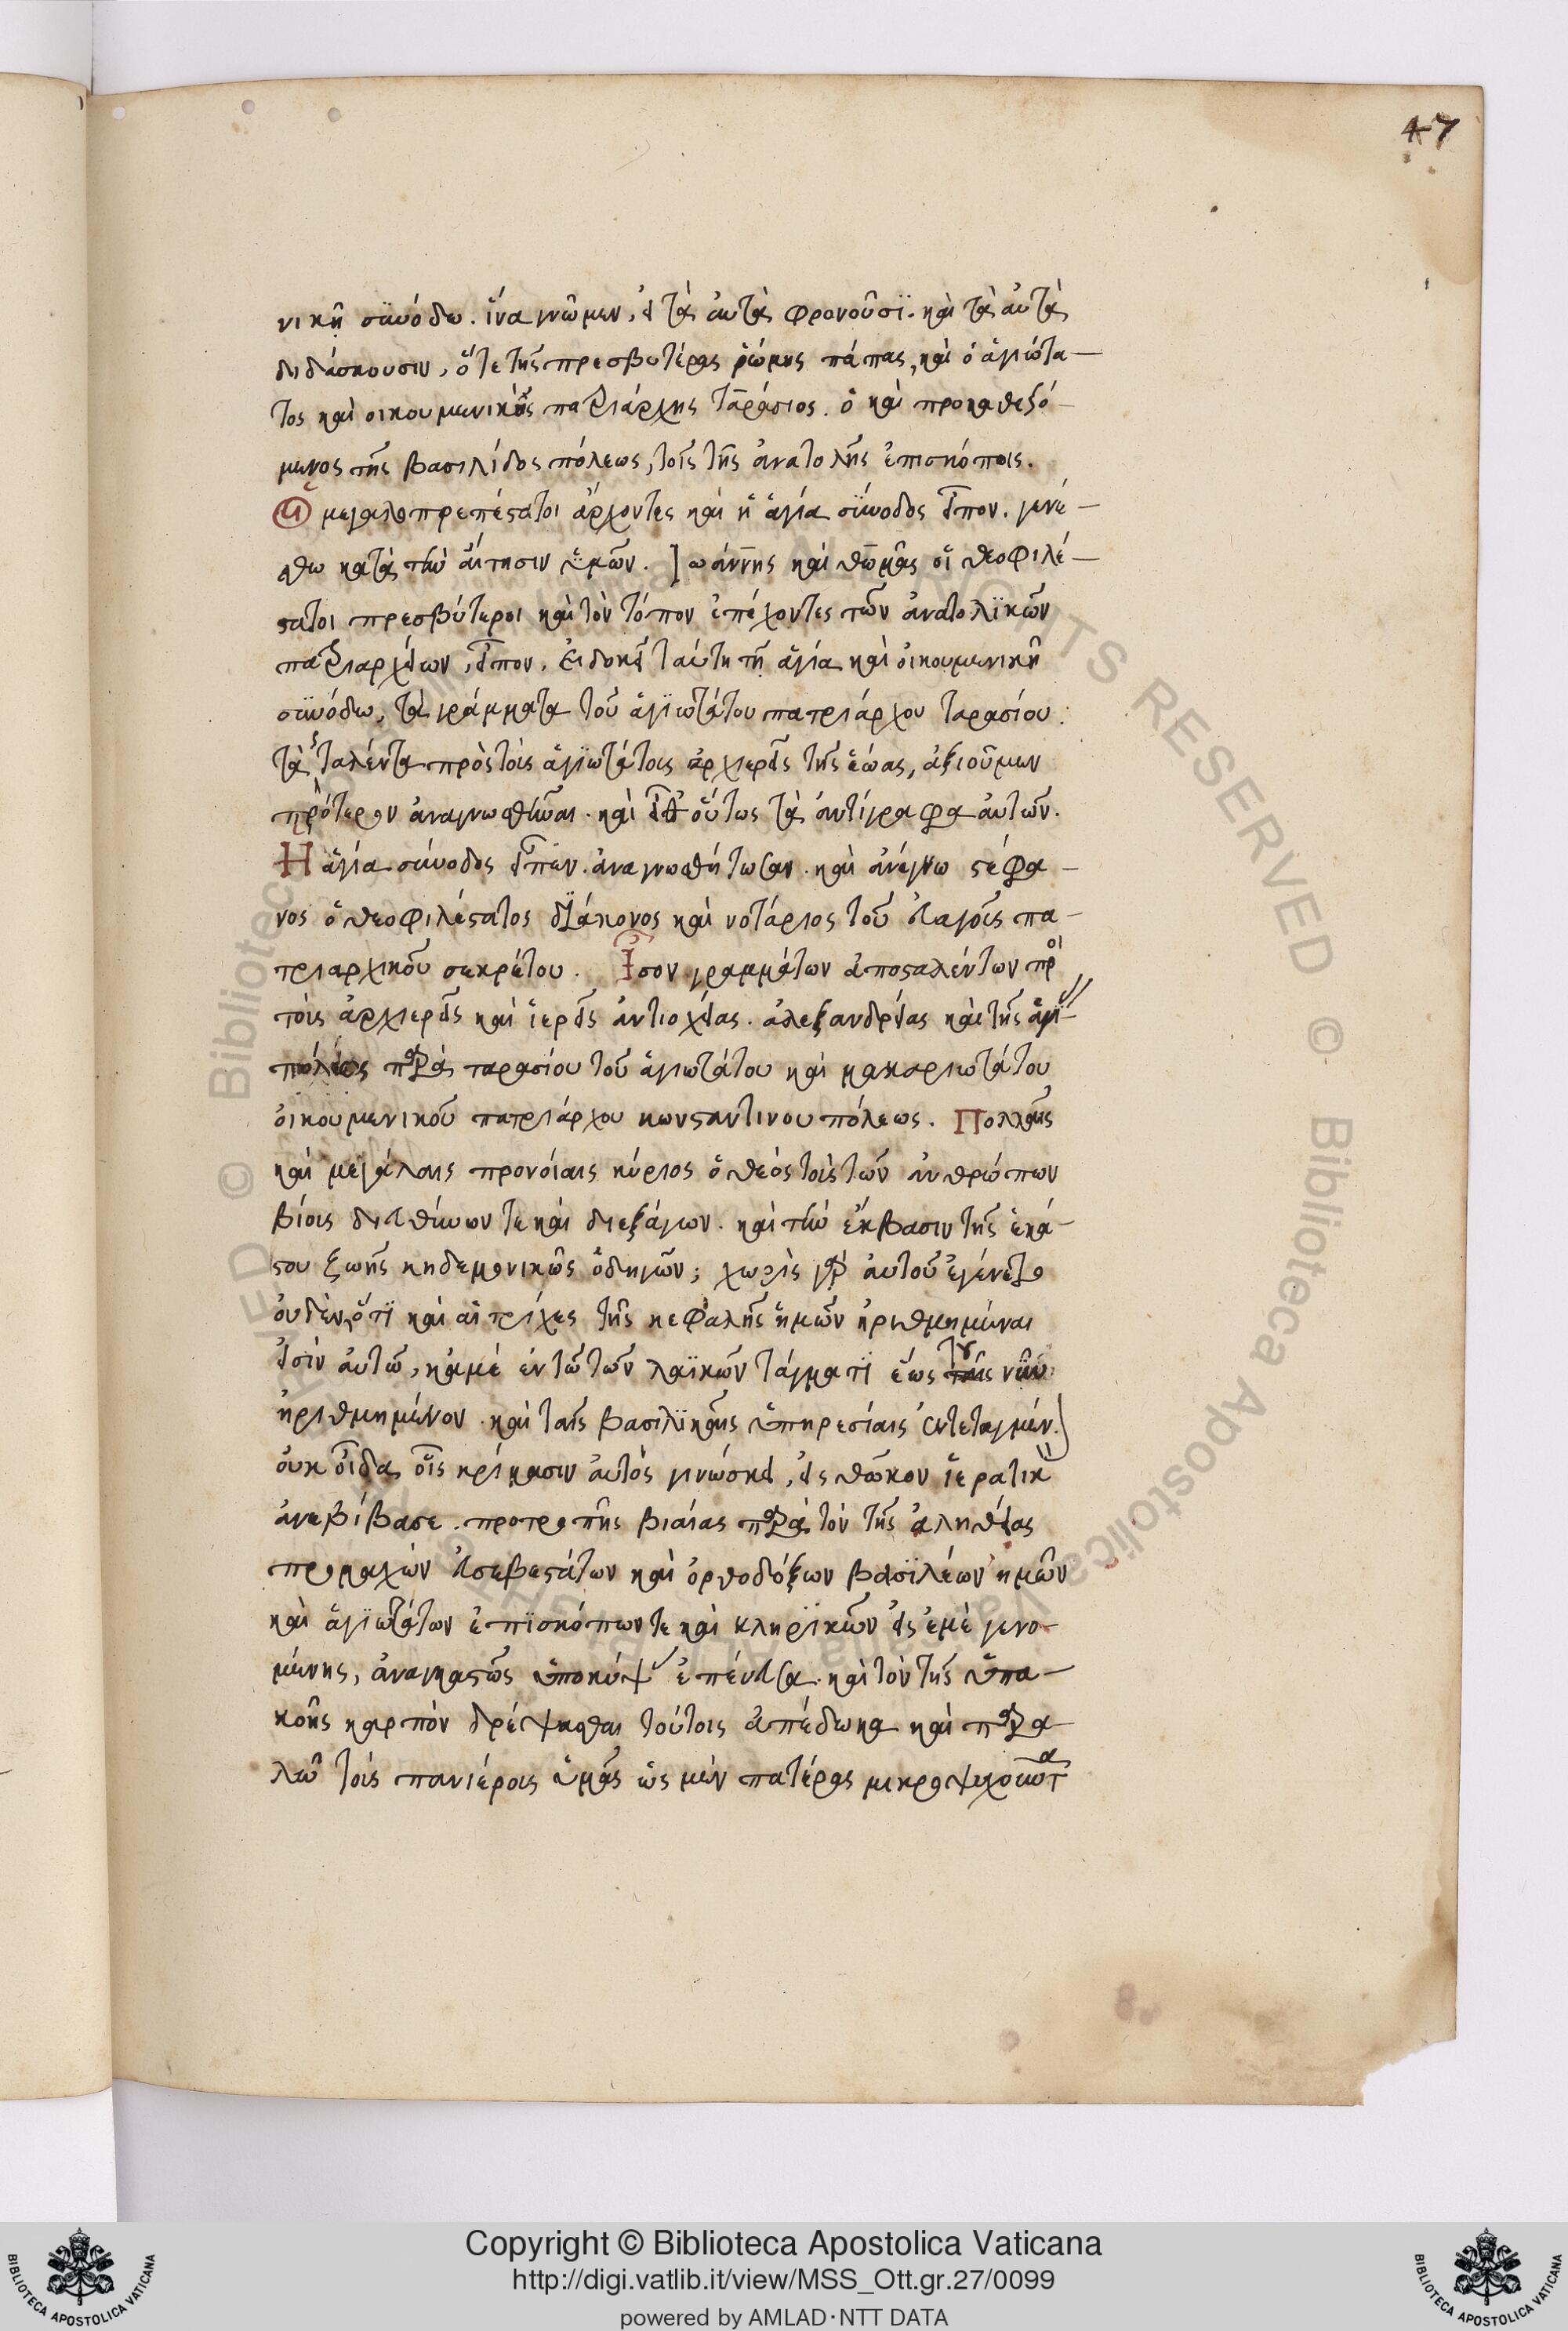 47
νικῆ συνόδω. ἵνα γνῶμεν, εἰ τὰ αὐτὰ φρονοῦσϊ. καὶ τὰ αὐτὰ
διδάσκουσιν, ὅτε τῆς πρεσβυτέρας ῥώμης πάπας, καὶ ὁ ἁγιώτα–
τος καὶ οἰκουμενικὸς πατριάρχης ταράσιος. ὁ καὶ προκαθεζό–
μενος τῆς βασιλίδος πόλεως, τοῖς τῆς ἀνατολῆς ἐπισκόποις.
Οἱ μεγαλοπρεπέστατοι ἄρχοντες καὶ ἡ ἁγία σύνοδος εἶπον. γενέ–
σθω κατὰ τὴν αἴτησιν ὑμῶν. Ἰωάννης καὶ θωμᾶς οἱ θεοφιλέ–
στατοι πρεσβύτεροι καὶ τὸν τόπον ἐπέχοντες τῶν ἀνατολϊκῶν
πατριαρχείων, εἶπον. εἰ δοκεῖ ταύτη τῆ ἁγία καὶ οἰκουμενικῆ
συνόδω, τὰ γράμματα τοῦ ἁγϊωτάτου πατριάρχου ταρασίου.
τὰ σταλέντα πρὸς τοὺς ἁγϊωτάτους ἀρχιερεῖς τῆς ἑώας, ἀξιοῦμεν
πρότερον ἀναγνωσθῆναι. καὶ εἶθ' οὕτως τὰ ἀντίγραφα αὐτῶν.
Ἡ ἁγία σύνοδος εἶπεν. ἀναγνωσθήτωσαν. καὶ ἀνέγνω στέφα–
νος ὁ θεοφιλέστατος διάκονος καὶ νοτάριος τοῦ εὐαγοῦς πα–
τριαρχικοῦ σεκρέτου. Ἴσον γραμμάτων ἀποσταλέντων πρὸ
τοὺς ἀρχιερεῖς καὶ ἱερεῖς ἀντιοχείας. ἀλεξανδρείας καὶ τῆς ἁγί
πόλεως παρὰ ταρασίου τοῦ ἁγιωτάτου καὶ μακαριωτάτου
οἰκουμενικοῦ πατριάρχου κωνσταντινουπόλεως. Πολλαῖς
καὶ μεγάλαις προνοίαις κύριος ὁ θεὸς τοὺς τῶν ἀνθρώπων
βίους διευθύνων τε καὶ διεξάγων. καὶ τὴν ἔκβασιν τῆς ἑκά–
στου ζωῆς κηδεμονικῶς ὁδηγῶν; χωρὶς γὰρ αὐτοῦ ἐγένετο
οὐδὲν, ὅτϊ καὶ αἱ τρίχες τῆς κεφαλῆς ἡμῶν ἠριθμημέναι
εἰσὶν αὐτῶ, κᾀμὲ ἐν τῶ τῶν λαϊκῶν τάγματϊ ἕως τοῦ νῦν
ἠριθμημένον. καὶ ταῖς βασιλϊκαῖς ὑπηρεσίαις ἐντεταγμέν.
οὐκ οἶδα οἷς κρίμασιν αὐτὸς γινώσκει, εἰς θῶκον ἱερατικ
ἀνεβίβασε. προτροπῆς βιαίας παρὰ τὸν τῆς ἀληθείας
προμαχῶν εὐσεβεστάτων καὶ ὀρθοδόξων βασϊλέων ἡμῶν
καὶ ἁγϊωτάτων ἐπϊσκόπων τε καὶ κληρϊκῶν εἰς ἐμὲ γενο–
μένης, ἀναγκαστῶς ὑποκύψ ἐπένευσα. καὶ τὸν τῆς ὑπα–
κοῆς καρπὸν δρέψασθαι τούτοις ἀπέδωκα καὶ παρα–
λῶ τοὺς πανιέρους ὑμᾶς ὡς μὲν πατέρας
Copyright © Biblioteca Apostolica Vaticana
http://digi.vatlib.it/view/MSS_Ott.gr.27/0099
powered by AMLAD·NTT DATA